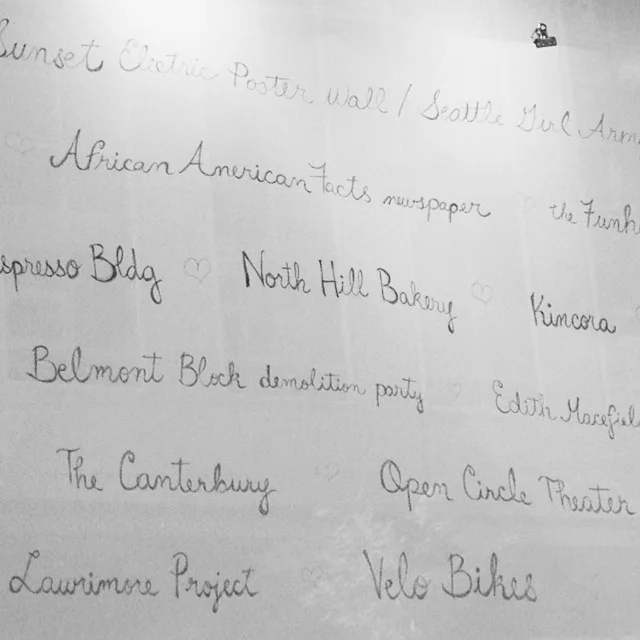 Sunset Electric Poster Wall / Seattle Girl Army
♡ African American Facts newspaper ♡ the Funh
spresso Bldg ♡ North Hill Bakery ♡ Kincora
Belmont Block demolition party ♡ Edith Macefiel
The Canterbury ♡ Open Circle Theater
Lawrimore Project ♡ Velo Bikes